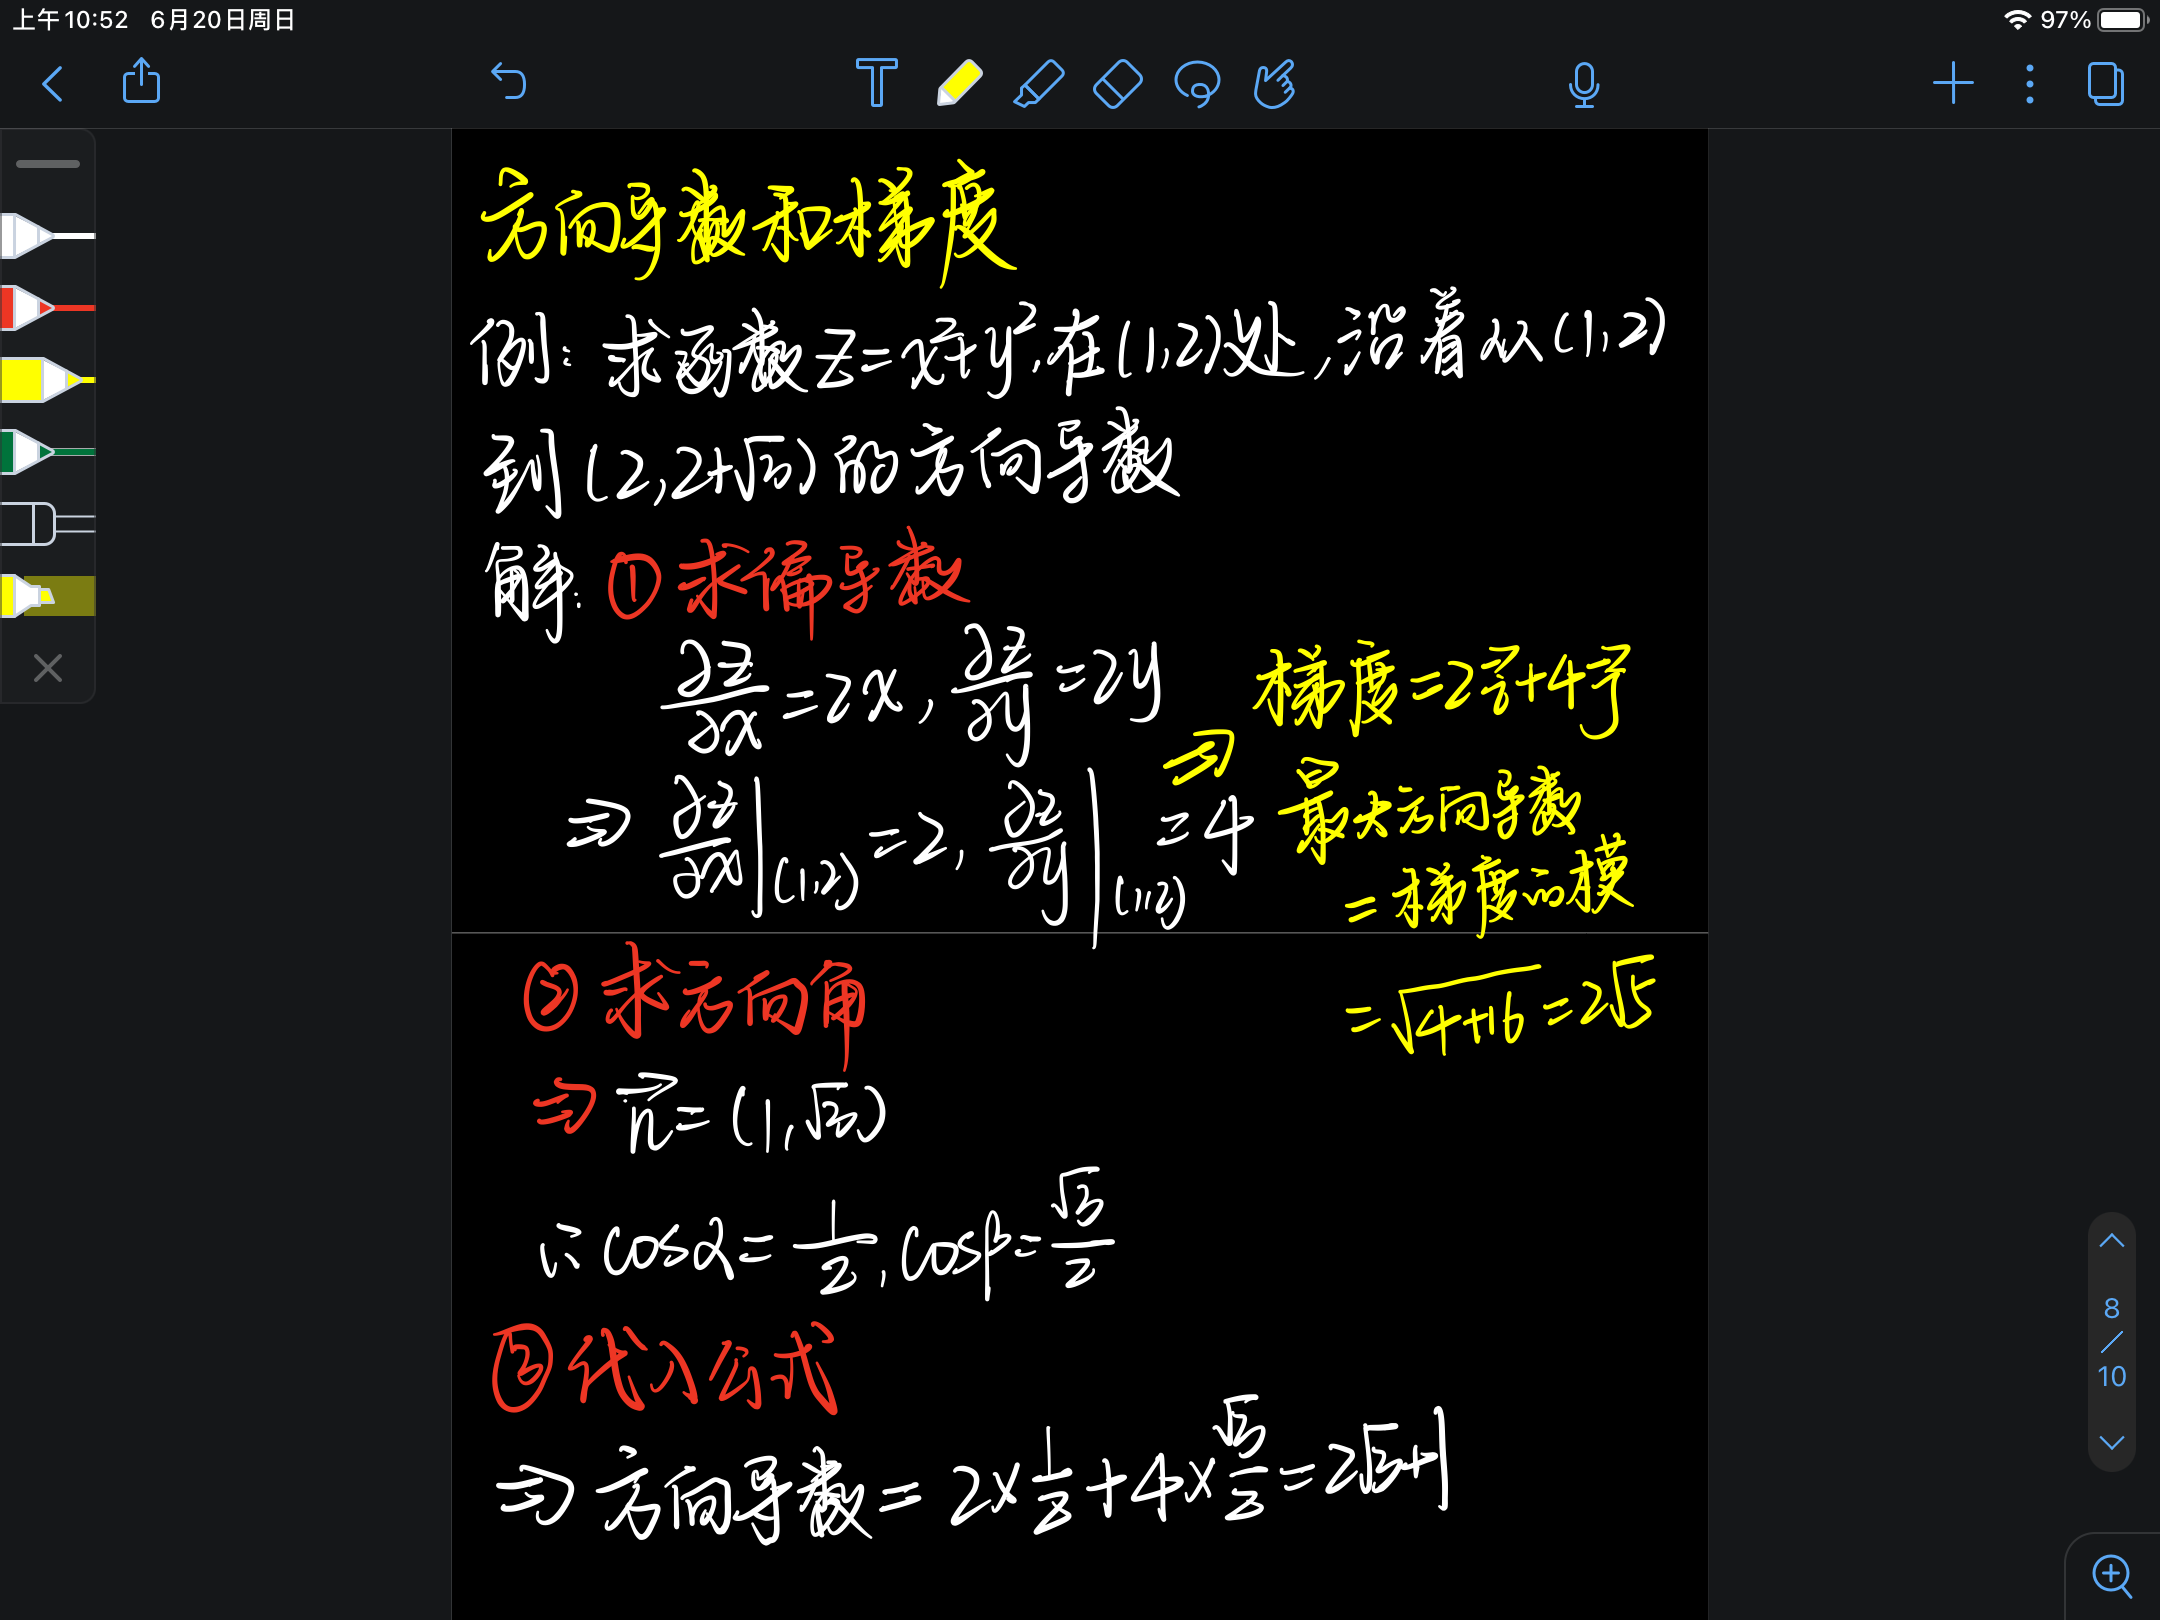 上午10:52 6月20日周日 97%
方向导数和梯度
例: 求函数 z=x²+y², 在(1,2)处, 沿着从(1,2)
到(2,2+√3)的方向导数
解: ①求偏导数
∂z/∂x=2x, ∂z/∂y=2y
⇒ ∂z/∂x|(1,2)=2, ∂z/∂y|(1,2)=4
⇒ 梯度=2i⃗+4j⃗
最大方向导数
=梯度的模
=√(4+16)=2√5
②求方向角
⇒ n⃗=(1,√3)
∴cosα=1/2, cosβ=√3/2
③代入公式
⇒方向导数=2×1/2+4×√3/2=2√3+1
8
/
10